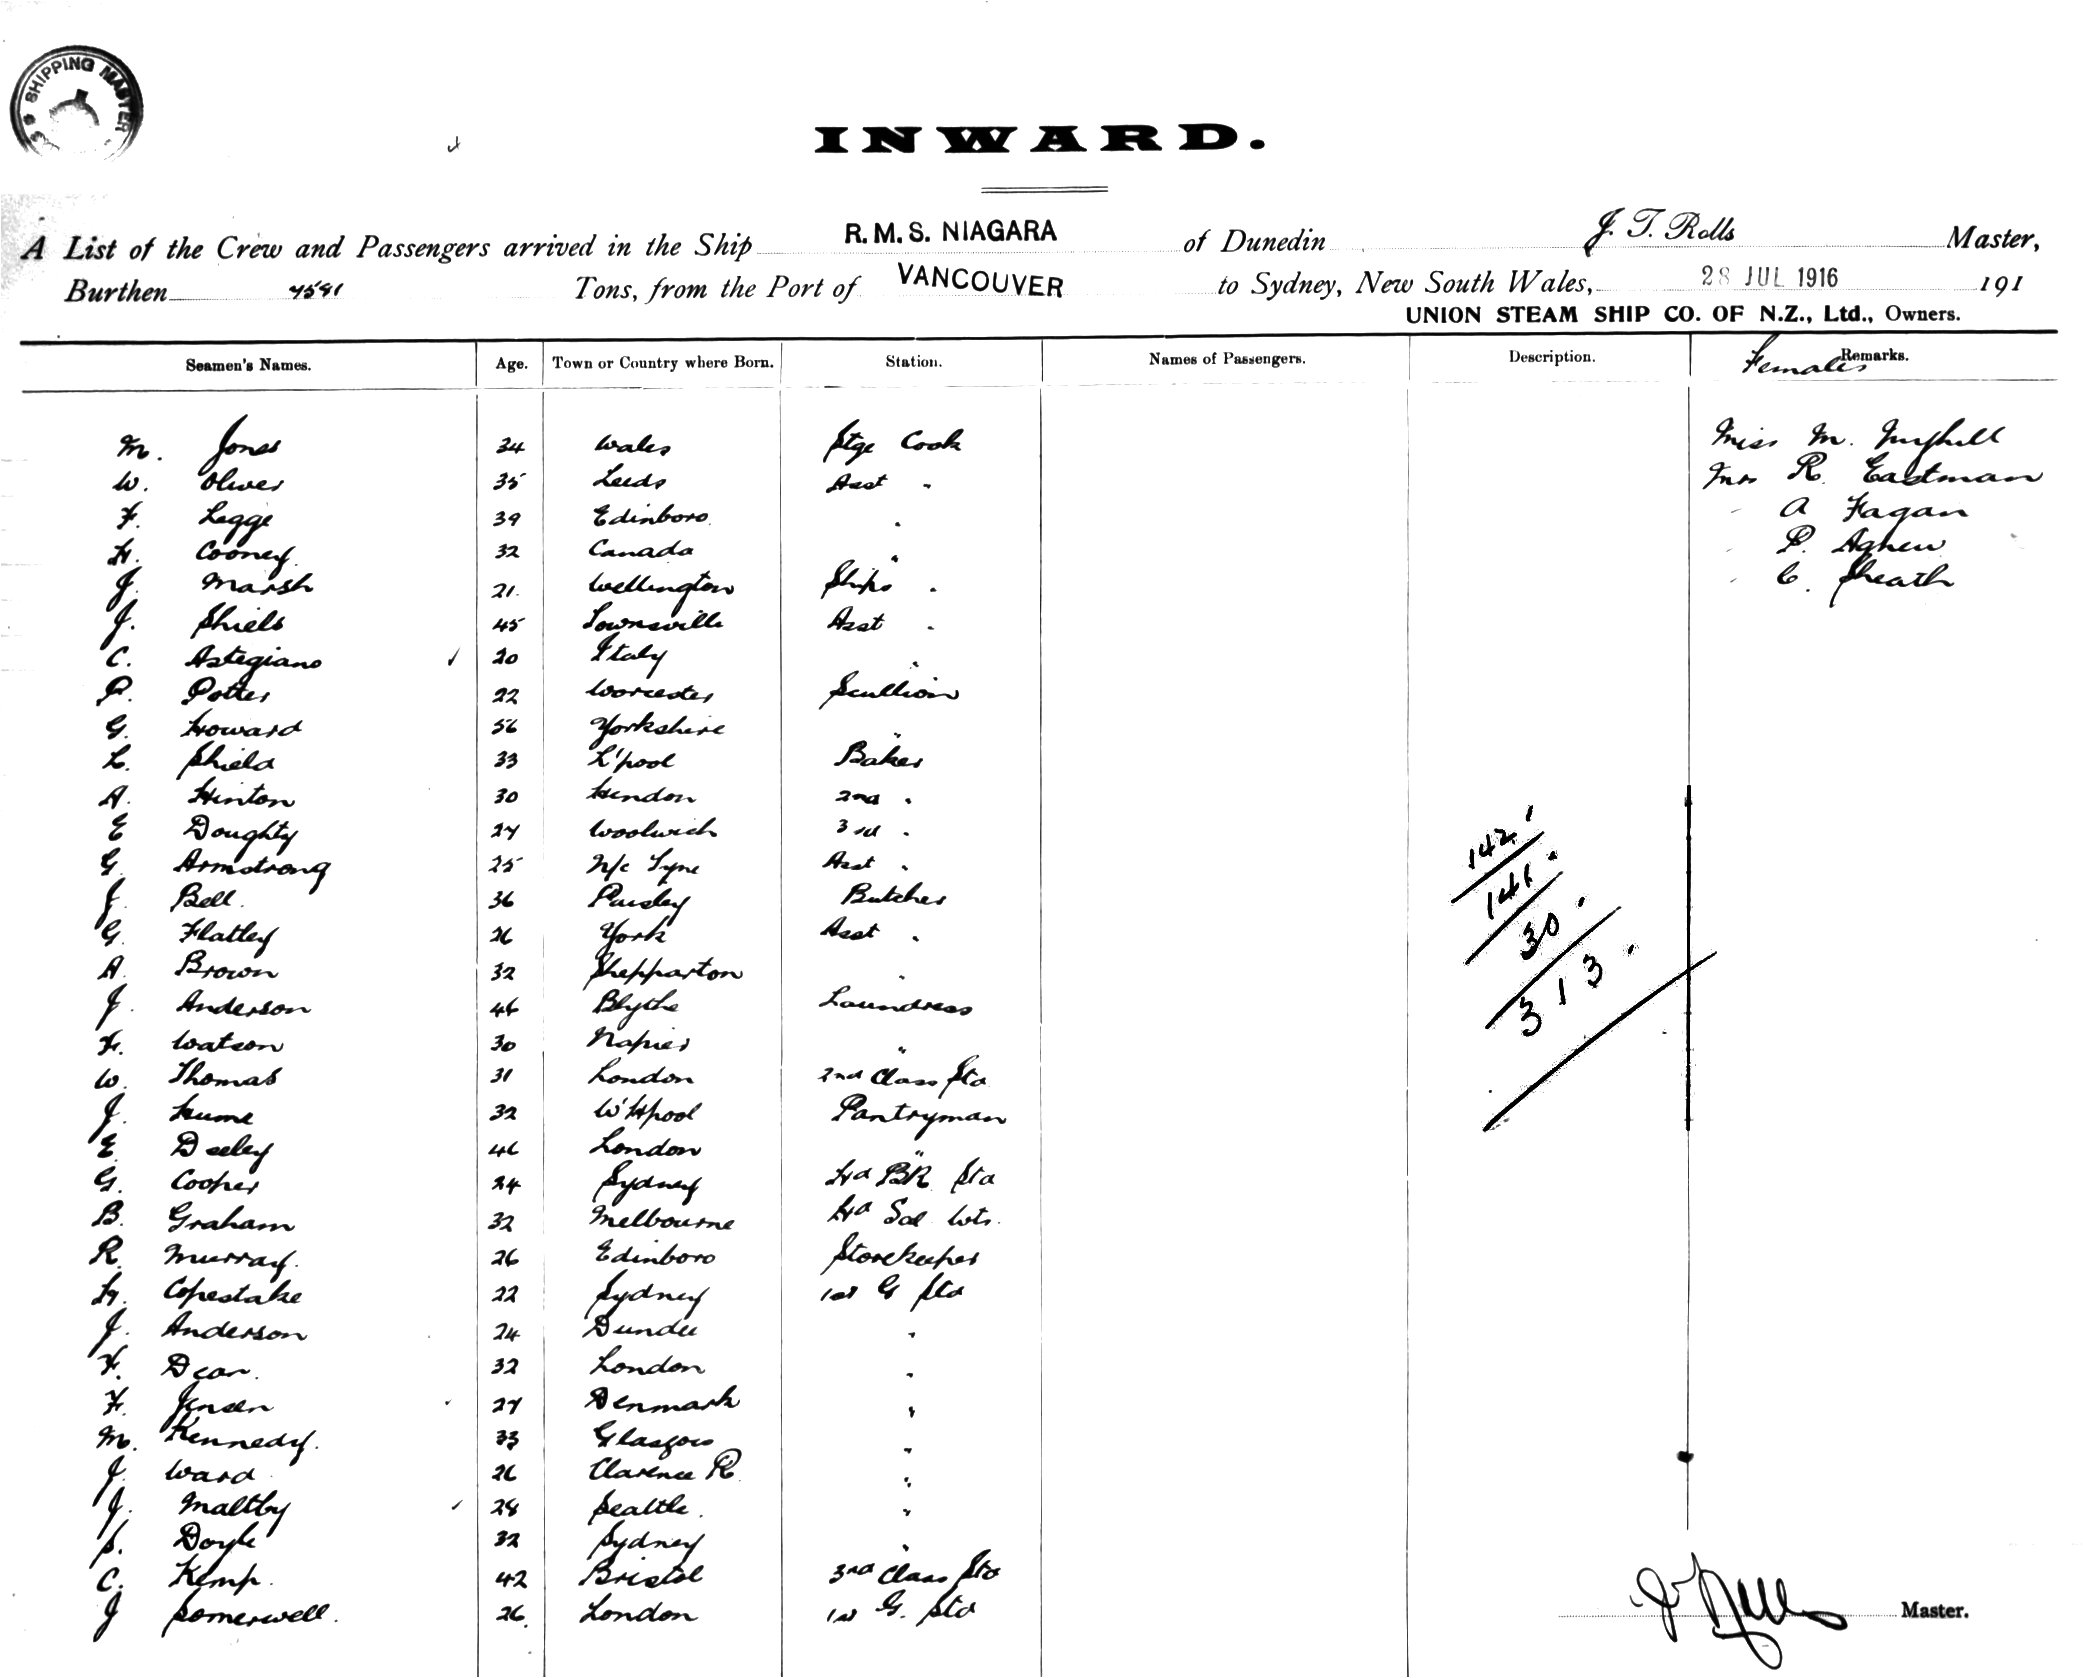 SHIPPING MASTER
INWARD.
A List of the Crew and Passengers arrived in the Ship R.M.S. NIAGARA of Dunedin J. T. Rolls Master,
Burthen 7581 Tons, from the Port of VANCOUVER to Sydney, New South Wales, 28 JUL 1916 191
UNION STEAM SHIP CO. OF N.Z., Ltd., Owners.
Seamen's Names. Age. Town or Country where Born. Station. Names of Passengers. Description. Remarks.
Females
M. Jones 34 Wales Stge Cook Miss M.
W. Oliver 35 Leeds Asst " Mrs R. Eastman
F. Legge 39 Edinboro " " A Fagan
H. Cooney 32 Canada " " P. Agnew
J. Marsh 21 Wellington Ships " " C. Sheath
J. Shiels 45 Townsville Asst "
C. Astegiano 20 Italy "
P. Potter 22 Worcester Scullion
G. Howard 56 Yorkshire "
L. Shield 33 L'pool Baker
A. Hinton 30 Hendon 2nd "
E Doughty 27 Woolwich 3rd "
G. Armstrong 25 N/c Tyne Asst "
J. Bell 36 Paisley Butcher
G. Flatley 26 York Asst "
A Brown 32 Shepparton "
J. Anderson 46 Blythe Laundress
F. Watson 30 Napier "
W. Thomas 31 London 2nd Class Std
J. Hume 32 W'Hpool Pantryman
E Deeley 46 London "
G. Cooper 24 Sydney Hd BR Std
B. Graham 32 Melbourne Hd Sal Wtr.
R Murray 26 Edinboro Storekeeper
H. Copestake 22 Sydney 1st G Std
J. Anderson 24 Dundee "
F. Dear 32 London "
F. Jensen 27 Denmark "
M. Kennedy 33 Glasgow "
J. Ward 26 Clarence R. "
J. Maltby 28 Seattle "
S. Doyle 32 Sydney "
C. Kemp 42 Bristol 3rd Class Std
J Somerwell 26 London 1st G. Std
142.
141.
30.
313.
J Rolls Master.